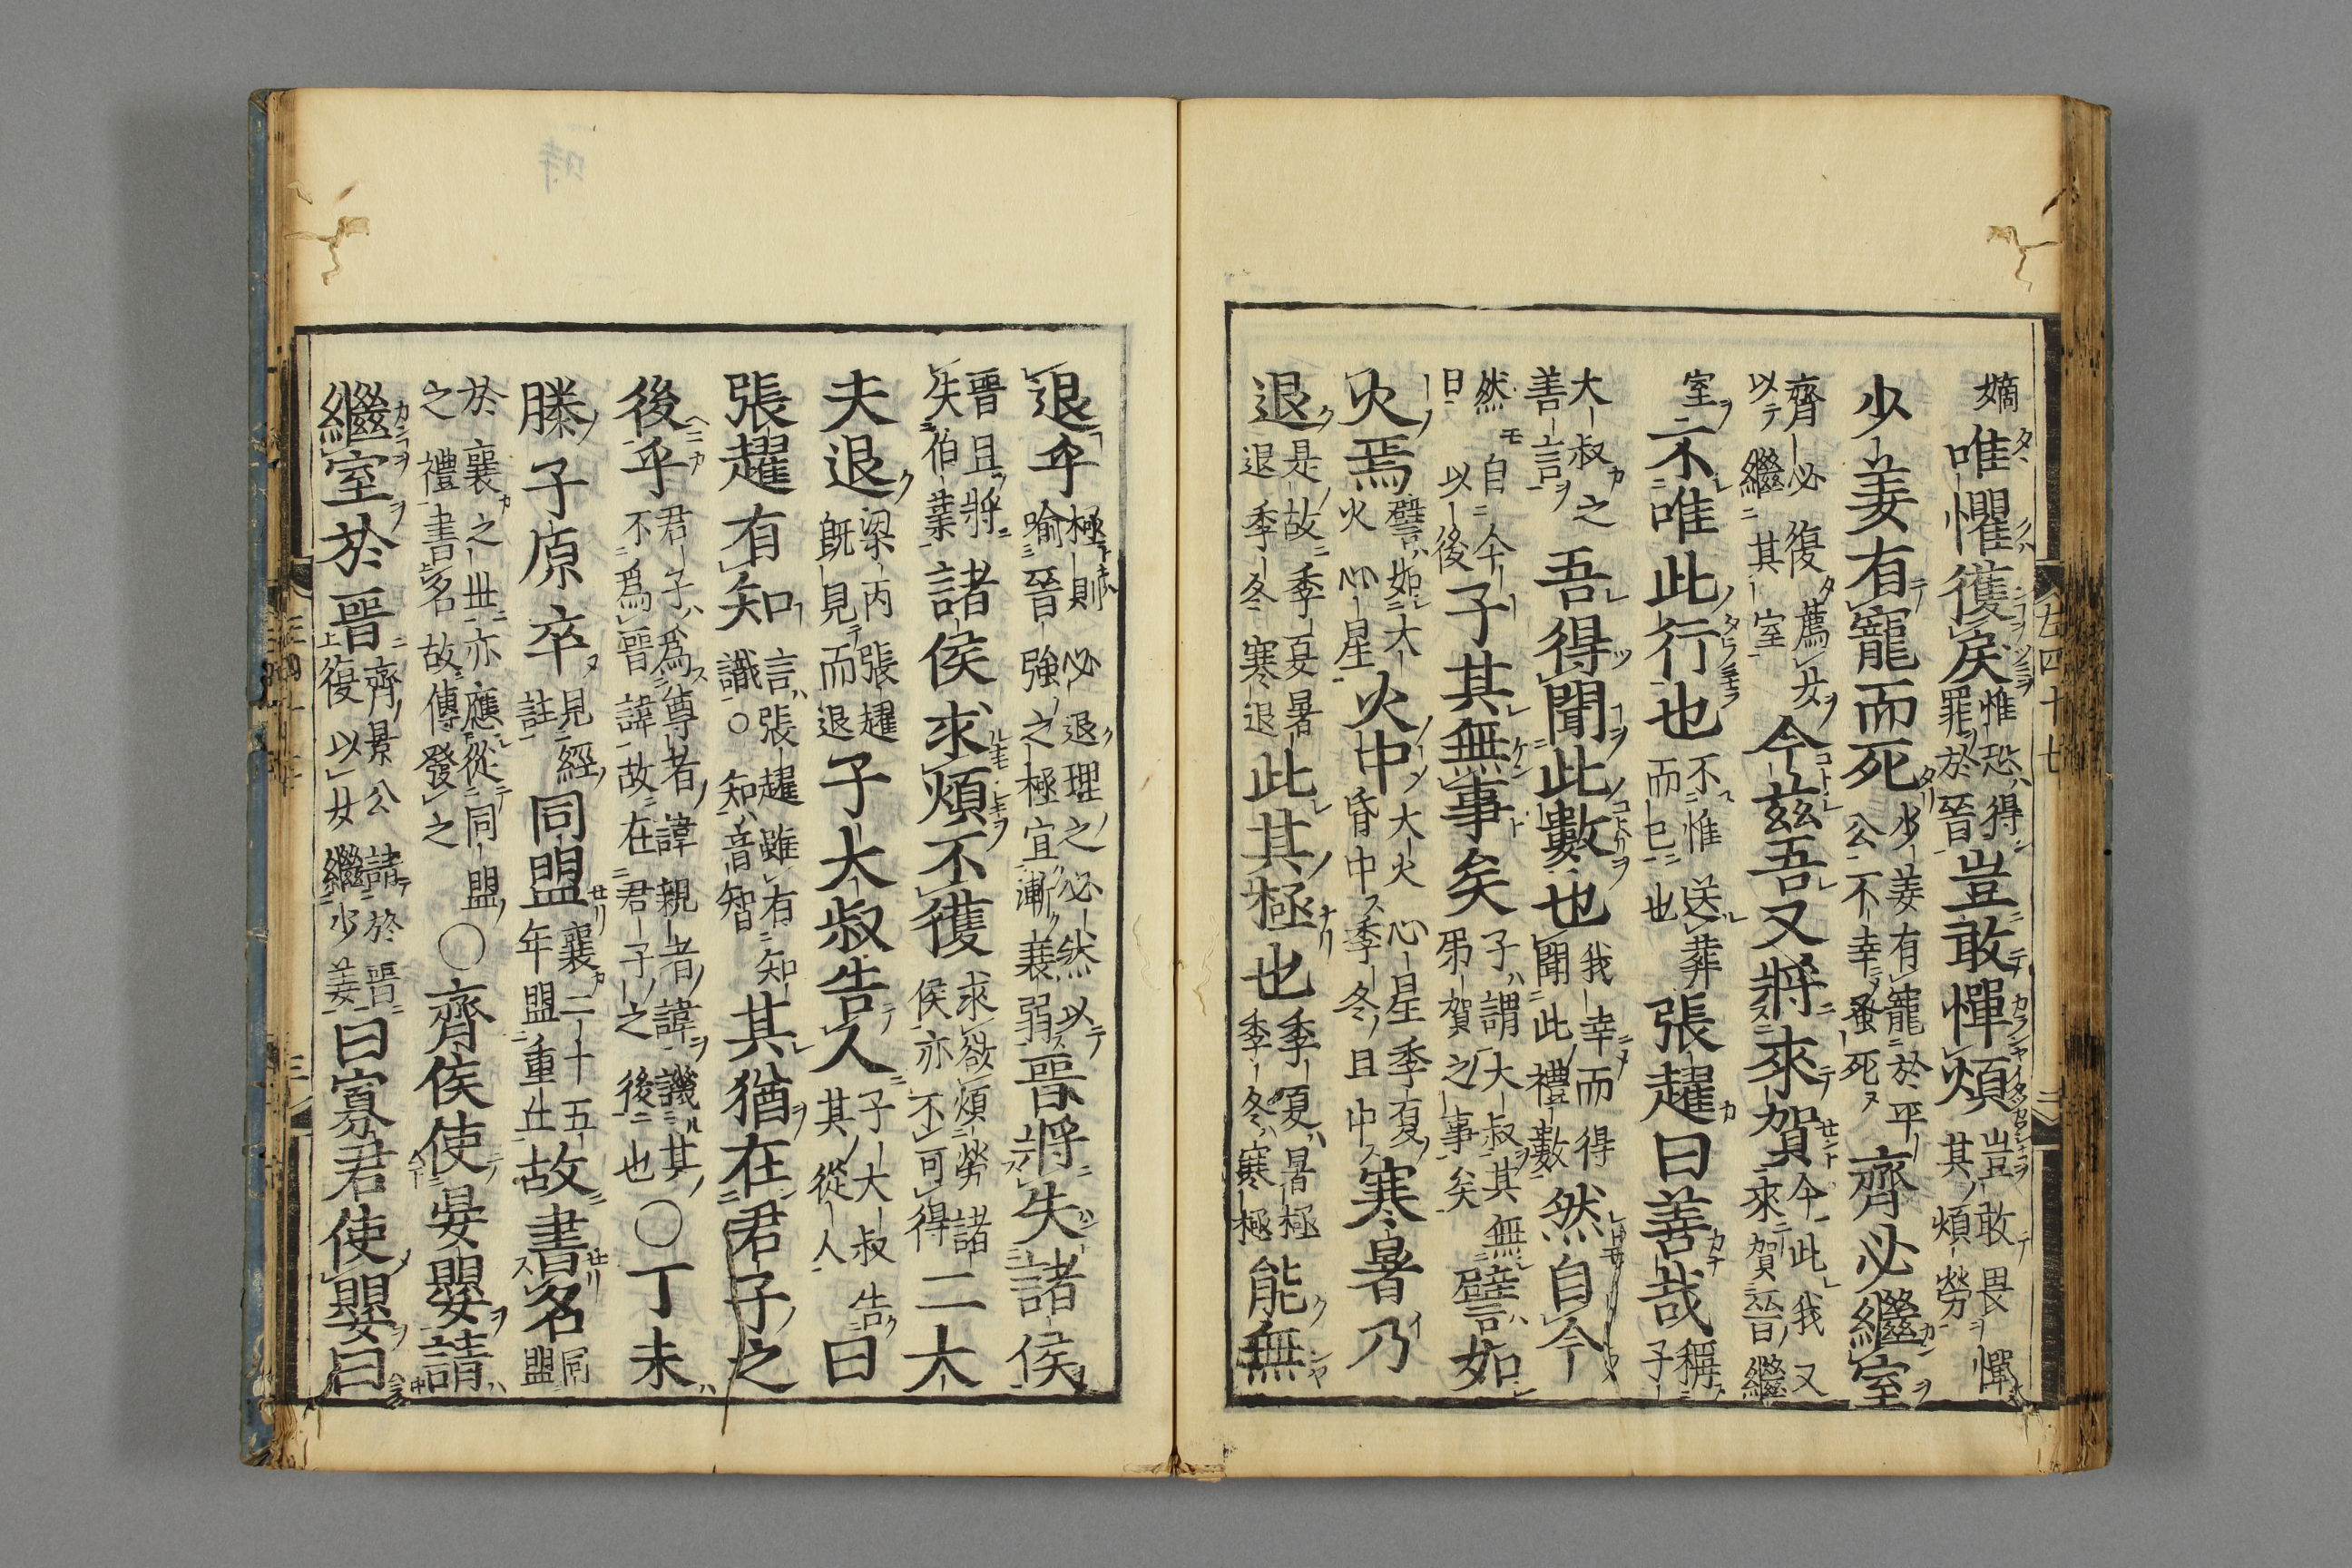 嫡唯懼獲戾惟恐得罪於晉豈敢憚煩豈敢畏憚其煩勞
少姜有寵而死少姜有寵於平公不幸蚤死齊必繼室
齊必復薦女以繼其室今茲吾又將來賀今此我又來賀晉繼
室不唯此行也不惟送葬而已也張趯曰善哉稱子
大叔之善言吾得聞此數也我幸而得聞此禮數然自今
然自今日以後子其無事矣子謂大叔其無弔賀之事矣譬如
火焉譬如大火心星火中大火心星季夏昏中季冬且中寒暑乃
退是故季夏暑退季冬寒退此其極也季夏暑極季冬寒極能無
退乎極則必退理之必然以喻晉強之極宜漸衰弱晉將失諸侯
晉且將失伯業諸侯求煩不獲求欲煩勞諸侯亦不可得二大
夫退梁丙張趯既見而退子大叔告人子大叔告其從人曰
張趯有知言張趯雖有知識○知音智其猶在君子之
後乎君子爲尊者諱親者諱譏其不爲晉諱故在君子之後也○丁未
滕子原卒見經註同盟襄二十五年盟重丘故書名同盟
於襄之世亦應從同盟之禮書名故傳發之○齊侯使晏嬰請
繼室於晉齊景公請於晉復以女繼少姜曰寡君使嬰曰